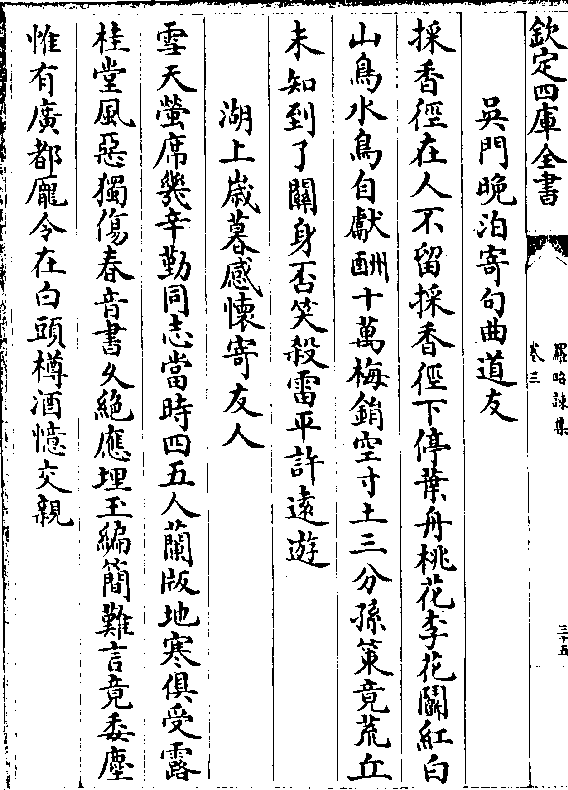 欽定四庫全書
羅昭諫集
卷三
三十五
吳門晚泊寄句曲道友
採香徑在人不留採香徑下停葉舟桃花李花鬭紅白
山鳥水鳥自獻酬十萬梅鋗空寸土三分孫策竟荒丘
未知到了關身否笑殺雷平許遠遊
湖上嵗暮感懷寄友人
雪天螢席幾辛勤同志當時四五人蘭版地寒俱受露
桂堂風惡獨傷春音書久絶應埋玉編簡難言竟委塵
惟有廣都龎令在白頭樽酒憶交親